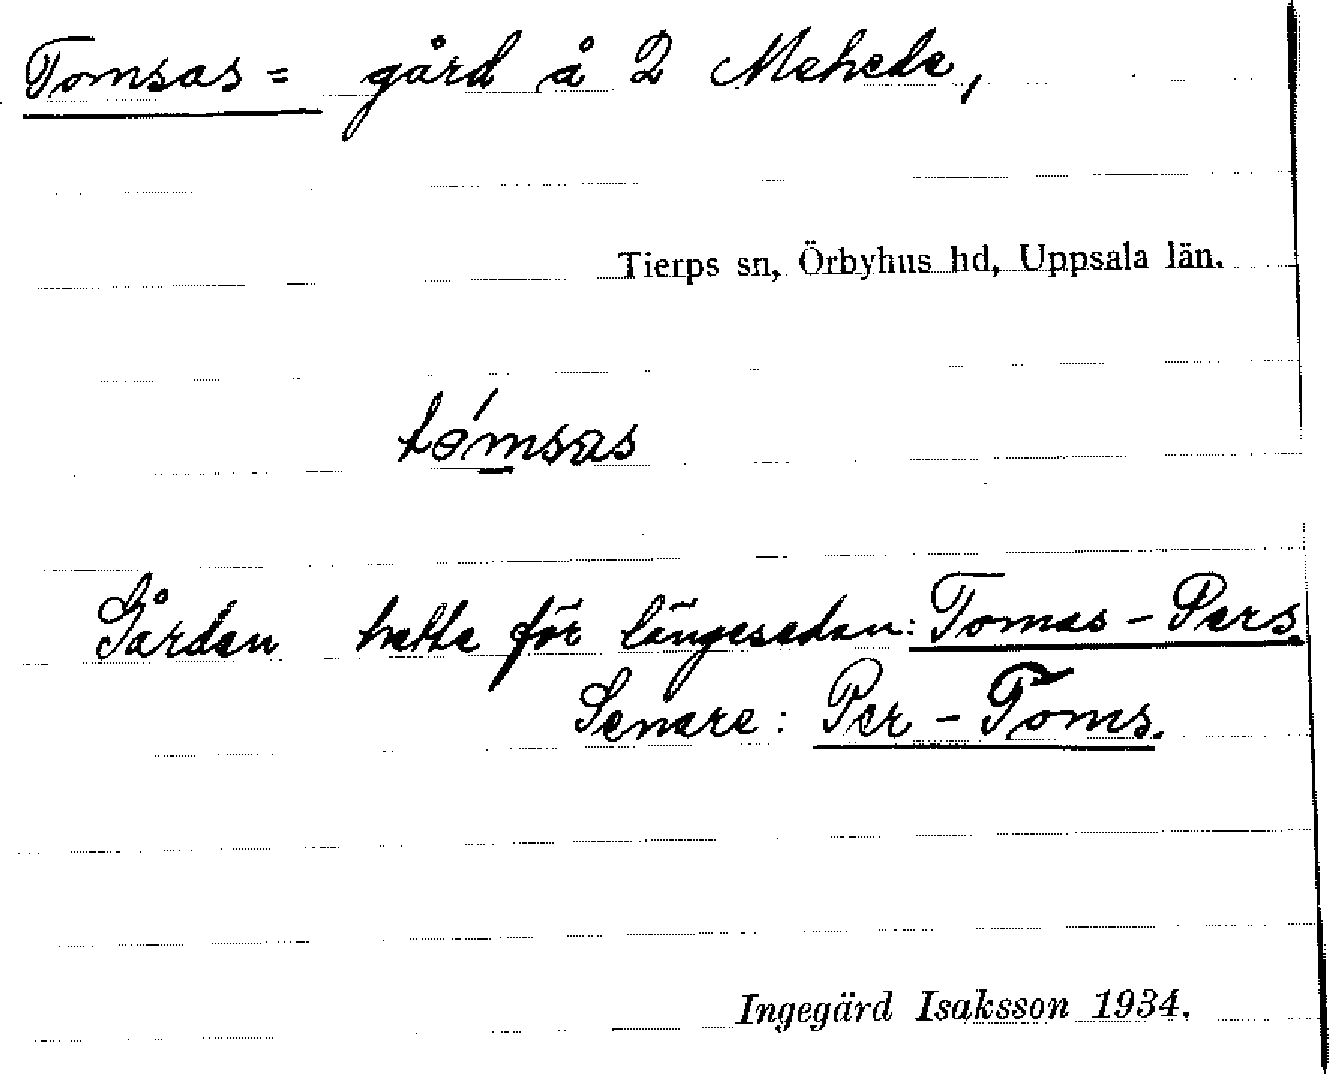 Tomsas = gård å 2 Mehede,
Tierps sn, Örbyhus hd, Uppsala län.
tómsas
Gården hette för längesedan: Tomas - Pers.
Senare: Per - Toms.
Ingegärd Isaksson 1934.